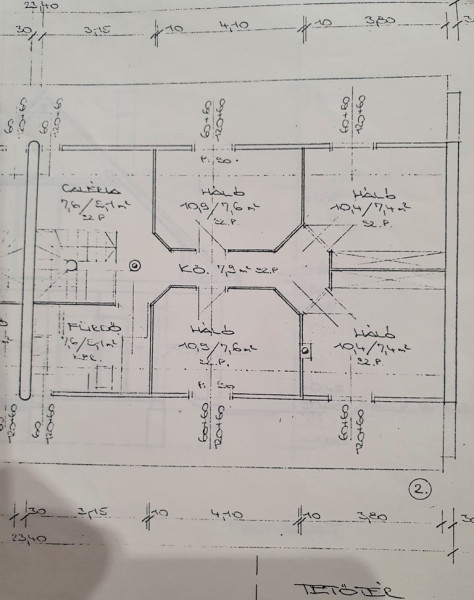 23,40
30 3,15 10 4,10 10 3,80
60 120+60 60 120+60 60+60 120+60 60+60 120+60
GALÉRIA
7,6/5,1 m²
SZ.P.
HÁLÓ
10,9/7,6 m²
SZ.P.
HÁLÓ
10,4/7,4 m²
SZ.P.
KÖ. 7,9 m² SZ.P.
FÜRDŐ
7,6/5,1 m²
HÁLÓ
10,9/7,6 m²
SZ.P.
HÁLÓ
10,4/7,4 m²
SZ.P.
60 120+60 60+60 120+60 60+60 120+60
2.
30 3,15 10 4,10 10 3,80
23,40
TETŐTÉR